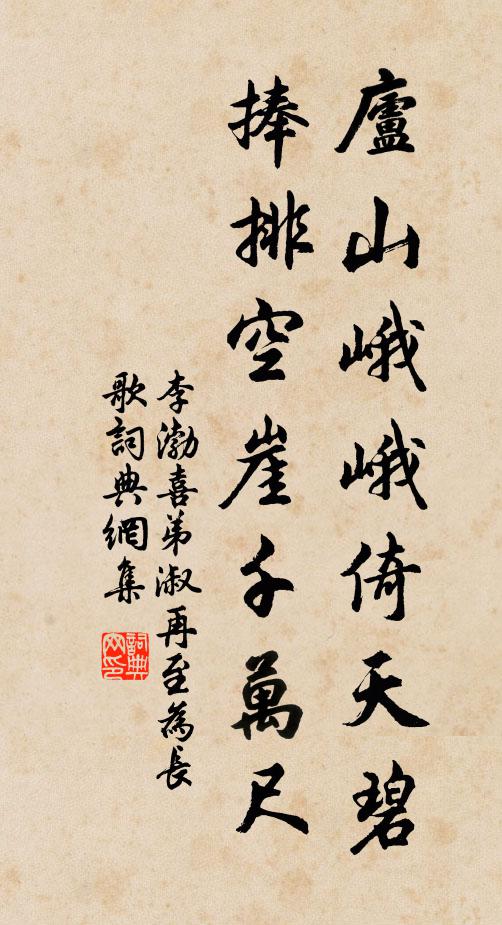 廬山峨峨倚天碧
捧排空崖千萬尺
李渤喜弟淑再至為長
歌詞典網集
詞典網印